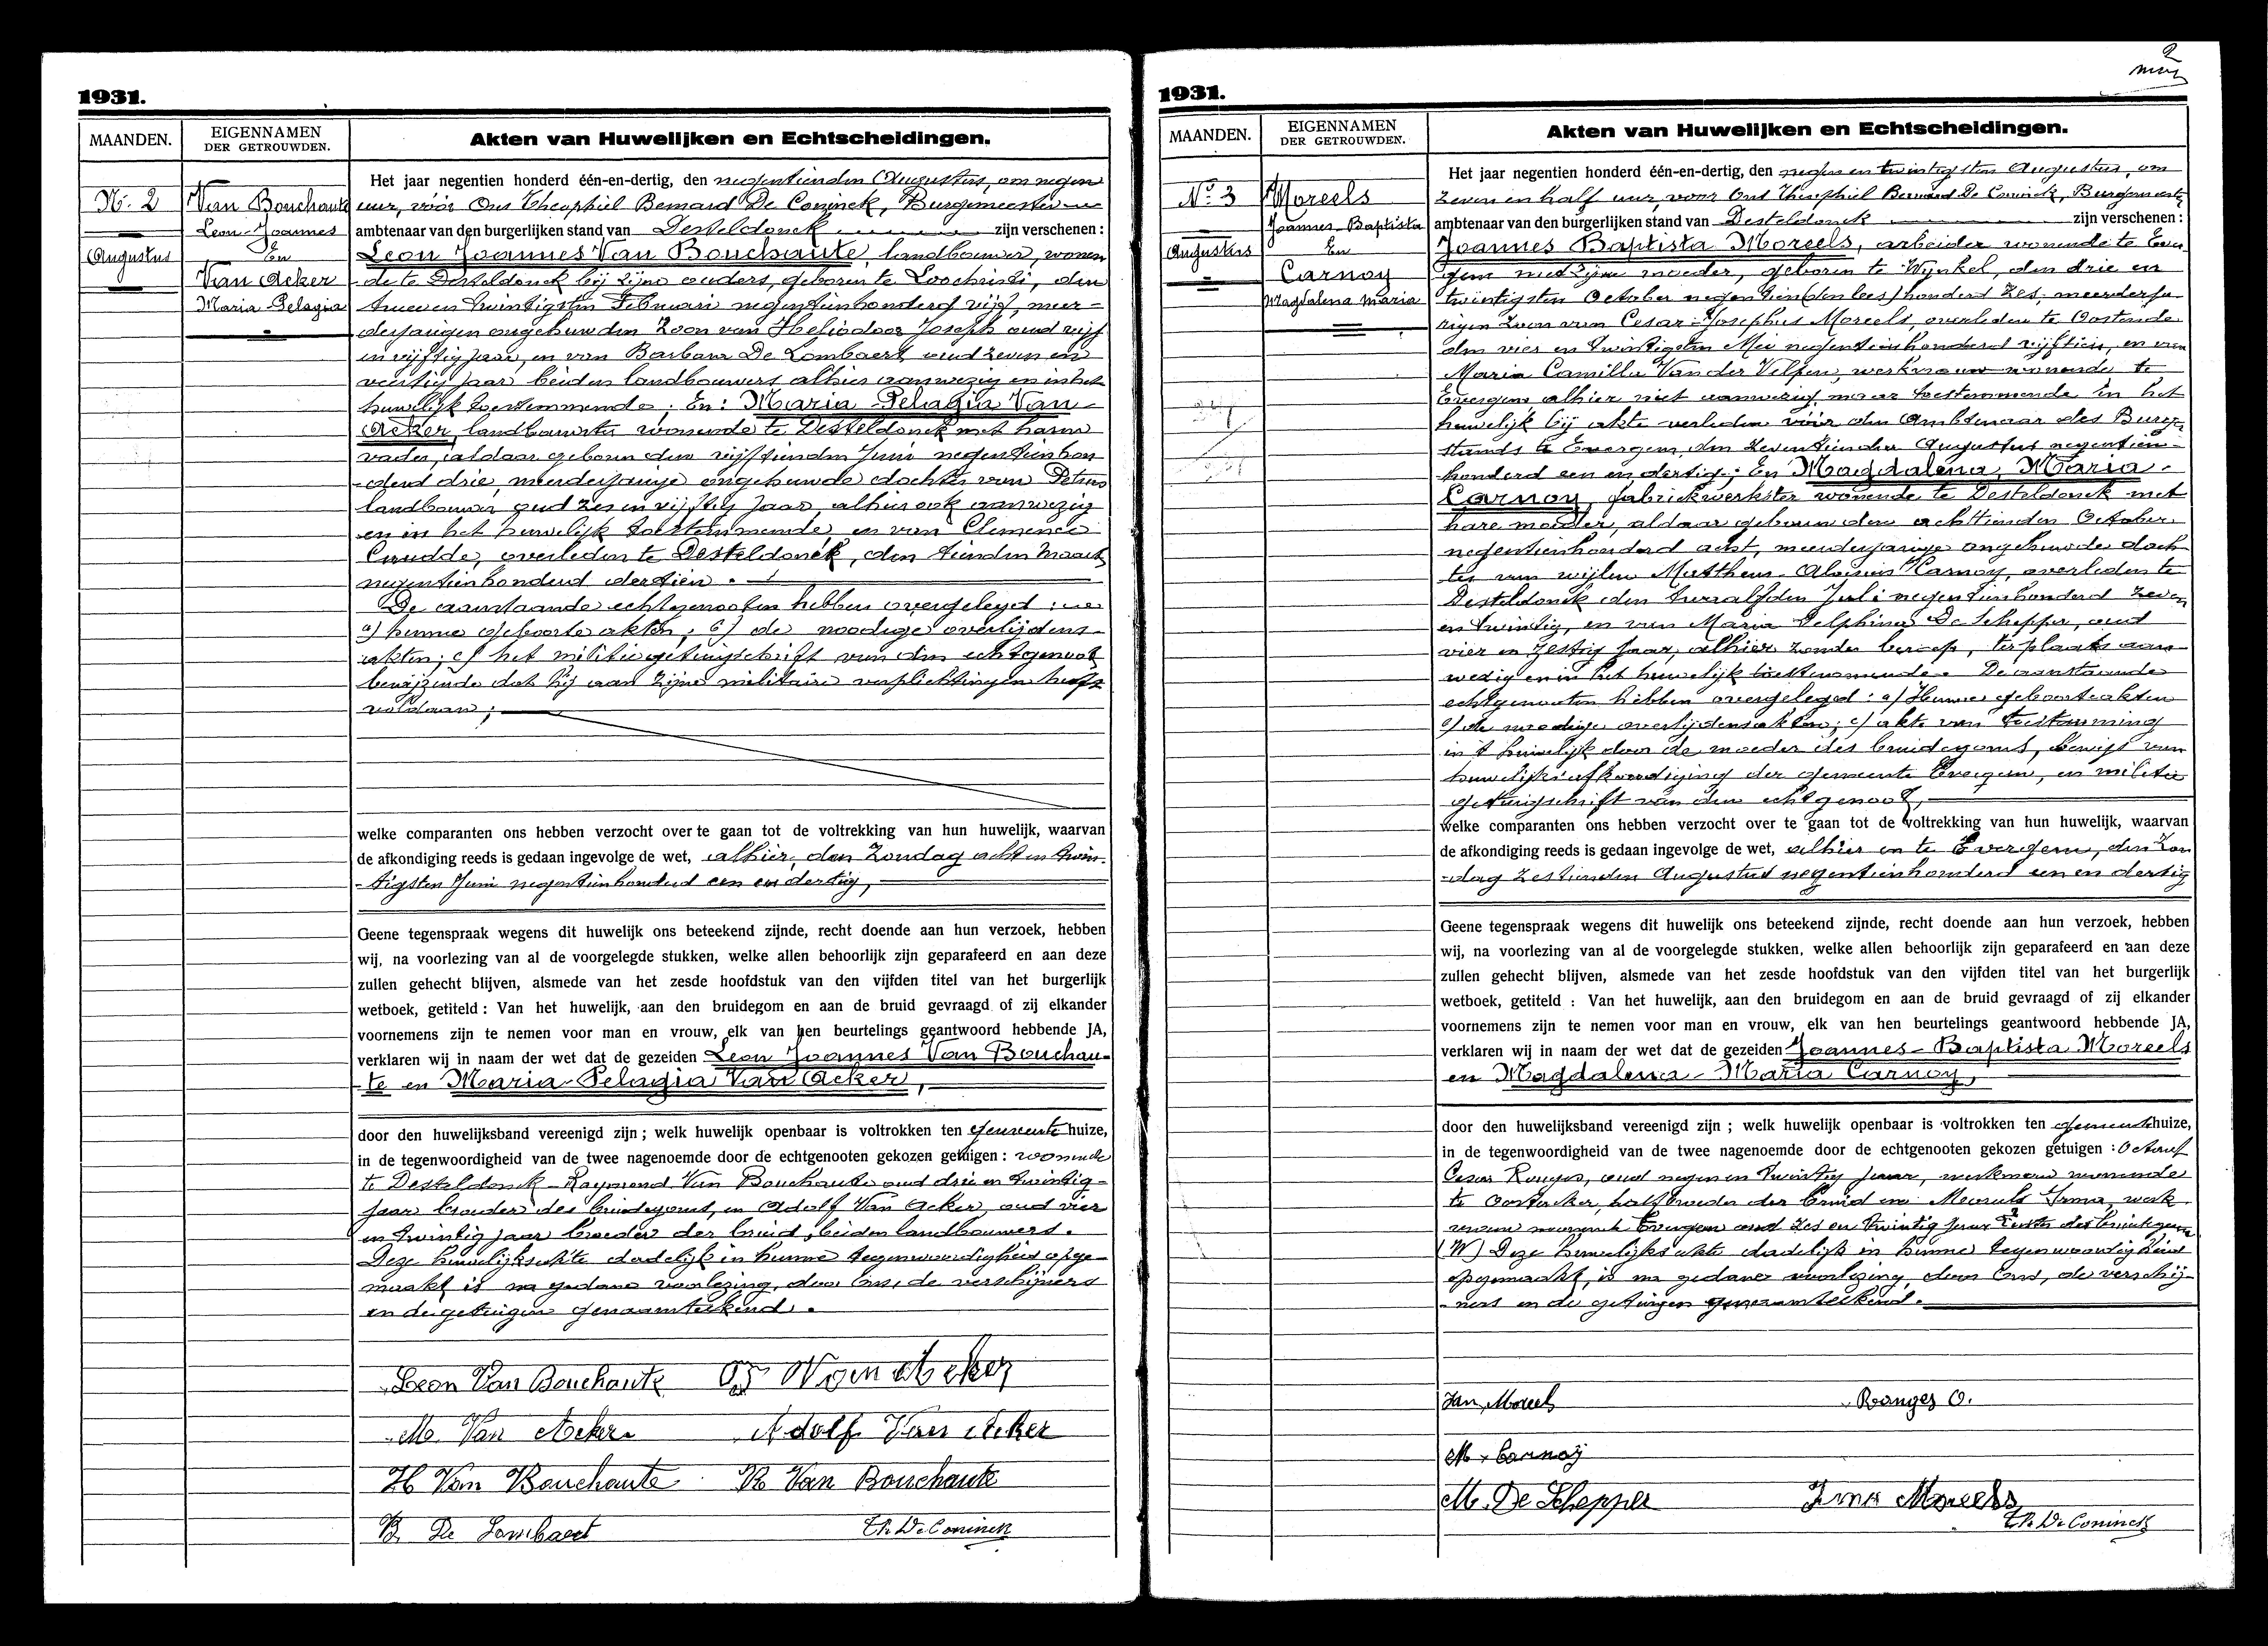 1931.
MAANDEN.
EIGENNAMEN
DER GETROUWDEN.
Akten van Huwelijken en Echtscheidingen.
Nr. 2
Augustus
Van Bouchaute
Leon Joannes
En
Van Acker
Maria Pelagia
Het jaar negentien honderd één-en-dertig, den negentienden Augustus, om negen
uur, vóór Ons Theophiel Bernard De Coninck, Burgemeester
ambtenaar van den burgerlijken stand van Desteldonck zijn verschenen :
Leon Joannes Van Bouchaute, landbouwer, wonen
de te Desteldonck bij zijne ouders, geboren te Loochristi, den
twee en twintigsten Februari negentienhonderd vijf, meer-
derjarigen ongehuwden zoon van Heliodoor Joseph oud vijf
en vijftig jaar, en van Barbara De Lombaert, oud zeven en
veertig jaar beiden landbouwers alhier aanwezig en in het
huwelijk toestemmende; En: Maria Pelagia Van
Acker, landbouwster wonende te Desteldonck met haren
vader, aldaar geboren den vijftienden Juni negentienhon
derd drie, meerderjarige ongehuwde dochter van Petrus
landbouwer oud zes en vijftig jaar, alhier ook aanwezig
en in het huwelijk toestemmende, en van Clemence
Coudde, overleden te Desteldonck, den tienden Maart
negentienhonderd dertien.
De aanstaande echtgenooten hebben overgelegd :
a) hunne geboorte akten; b) de noodige overlijdens-
akten; c) het militiegetuigschrift van den echtgenoot
bewijzende dat hij aan zijne militaire verplichtingen heeft
voldaan;
welke comparanten ons hebben verzocht over te gaan tot de voltrekking van hun huwelijk, waarvan
de afkondiging reeds is gedaan ingevolge de wet, alhier, den Zondag acht en twin-
tigsten Juni negentienhonderd een en dertig,
Geene tegenspraak wegens dit huwelijk ons beteekend zijnde, recht doende aan hun verzoek, hebben
wij, na voorlezing van al de voorgelegde stukken, welke allen behoorlijk zijn geparafeerd en aan deze
zullen gehecht blijven, alsmede van het zesde hoofdstuk van den vijfden titel van het burgerlijk
wetboek, getiteld : Van het huwelijk, aan den bruidegom en aan de bruid gevraagd of zij elkander
voornemens zijn te nemen voor man en vrouw, elk van hen beurtelings geantwoord hebbende JA,
verklaren wij in naam der wet dat de gezeiden Leon Joannes Van Bouchau-
te en Maria Pelagia Van Acker,
door den huwelijksband vereenigd zijn ; welk huwelijk openbaar is voltrokken ten gemeentehuize,
in de tegenwoordigheid van de twee nagenoemde door de echtgenooten gekozen getuigen : wonende
te Desteldonck - Raymond Van Bouchaute oud drie en twintig-
jaar broeder des bruidegoms, en Adolf Van Acker, oud vier
en twintig jaar broeder der bruid, beiden landbouwers.
Deze huwelijksakte dadelijk in hunne tegenwoordigheid opge-
maakt is na gedane voorlezing, door Ons, de verschijners
en de getuigen genaamteekend.
Leon Van Bouchaute
M. Van Acker
Adolf Van Acker
H Van Bouchaute
R Van Bouchaute
B. De Lombaert
Th. De Coninck
2
1931.
MAANDEN.
EIGENNAMEN
DER GETROUWDEN.
Akten van Huwelijken en Echtscheidingen.
No. 3
Augustus
Moreels
Joannes Baptista
En
Carnoy
Magdalena Maria
Het jaar negentien honderd één-en-dertig, den negen en twintigsten Augustus, om
zeven en half uur, voor Ons Theophiel Bernard De Coninck, Burgemeester
ambtenaar van den burgerlijken stand van Desteldonck zijn verschenen :
Joannes Baptista Moreels, arbeider wonende te Ever
gem met zijne moeder, geboren te Wynkel, den drie en
twintigsten October negentien (den lees) honderd zes, meerderja
rigen zoon van Cesar-Josephus Moreels, overleden te Oostende
den vier en twintigsten Mei negentienhonderd vijftien, en van
Maria Camilla Van der Velpen, werkvrouw wonende te
Evergem alhier niet aanwezig maar toestemmende in het
huwelijk bij akte verleden vóór den Ambtenaar des Burge
stands te Evergem, den zeventienden Augustus negentien-
honderd een en dertig; En Magdalena Maria
Carnoy, fabriekwerkster wonende te Desteldonck met
hare moeder, aldaar geboren den achttienden October
negentienhonderd acht, meerderjarige ongehuwde doch
ter van wijlen Mattheus Aloisius Carnoy, overleden te
Desteldonck den twaalfden Juli negentienhonderd zeven
en twintig, en van Maria Delphina De Schepper, oud
vier en zestig jaar, alhier zonder beroep, ter plaats aan-
wezig en in het huwelijk toestemmende. De aanstaande
echtgenooten hebben overgelegd : a) Hunne geboorteakten
b) de noodige overlijdensakten; c) akte van toestemming
in 't huwelijk door de moeder des bruidegoms, bewijs van
huwelijksafkondiging der gemeente Evergem, en militie
getuigschrift van den echtgenoot,
welke comparanten ons hebben verzocht over te gaan tot de voltrekking van hun huwelijk, waarvan
de afkondiging reeds is gedaan ingevolge de wet, alhier en te Evergem, den Zon
dag zestienden Augustus negentienhonderd een en dertig
Geene tegenspraak wegens dit huwelijk ons beteekend zijnde, recht doende aan hun verzoek, hebben
wij, na voorlezing van al de voorgelegde stukken, welke allen behoorlijk zijn geparafeerd en aan deze
zullen gehecht blijven, alsmede van het zesde hoofdstuk van den vijfden titel van het burgerlijk
wetboek, getiteld : Van het huwelijk, aan den bruidegom en aan de bruid gevraagd of zij elkander
voornemens zijn te nemen voor man en vrouw, elk van hen beurtelings geantwoord hebbende JA,
verklaren wij in naam der wet dat de gezeiden Joannes-Baptista Moreels
en Magdalena-Maria Carnoy,
door den huwelijksband vereenigd zijn ; welk huwelijk openbaar is voltrokken ten gemeentehuize,
in de tegenwoordigheid van de twee nagenoemde door de echtgenooten gekozen getuigen : Octaaf
Cesar Ronges, oud negen en twintig jaar, werkman wonende
te Oostacker, halfbroeder der bruid en Moreels Irma, werk
vrouw wonende Evergem oud zes en twintig jaar zuster des bruidegoms
(W) Deze huwelijksakte dadelijk in hunne tegenwoordigheid
opgemaakt, is na gedane voorlezing door Ons, de verschij-
ners en de getuigen genaamteekend.
Jan Moreels
Ronges O.
M. Carnoy
M. De Schepper
Irma Moreels
Th. De Coninck